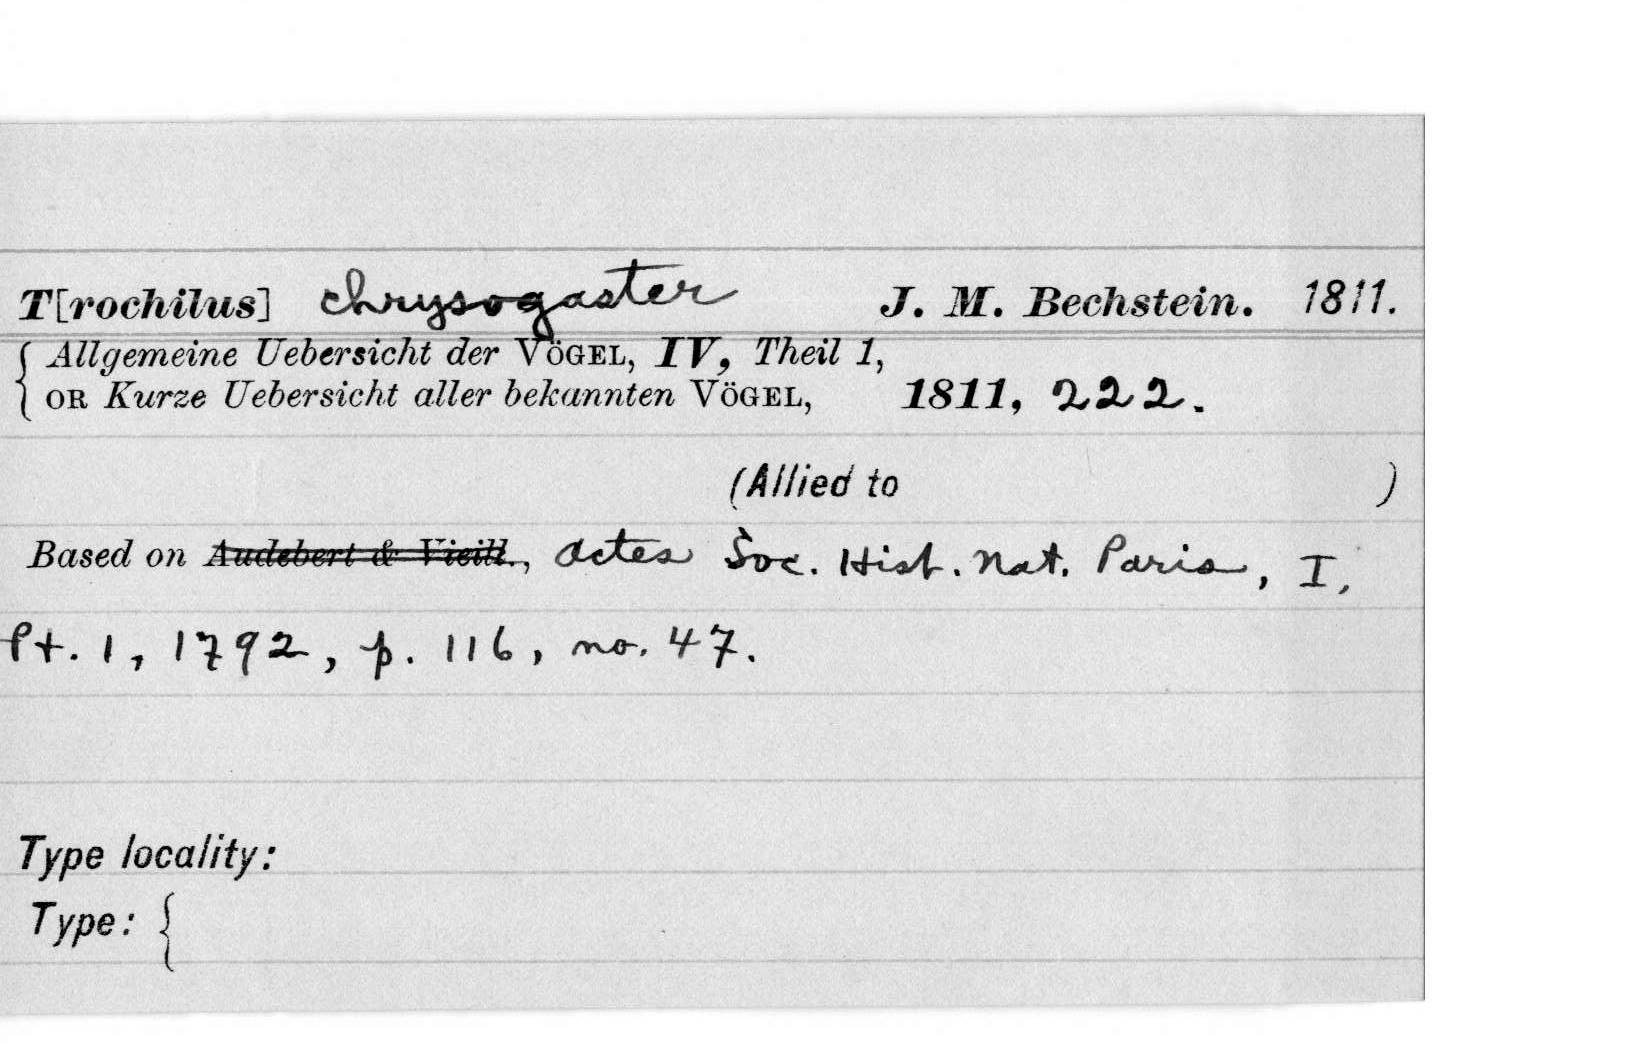 T[rochilus] chrysogaster J. M. Bechstein. 1811.
{ Allgemeine Uebersicht der VÖGEL, IV, Theil 1,
OR Kurze Uebersicht aller bekannten VÖGEL, 1811, 222.
(Allied to )
Based on Audebert & Vieill., Actes Soc. Hist. Nat. Paris, I,
Pt. 1, 1792, p. 116, no. 47.
Type locality:
Type: {